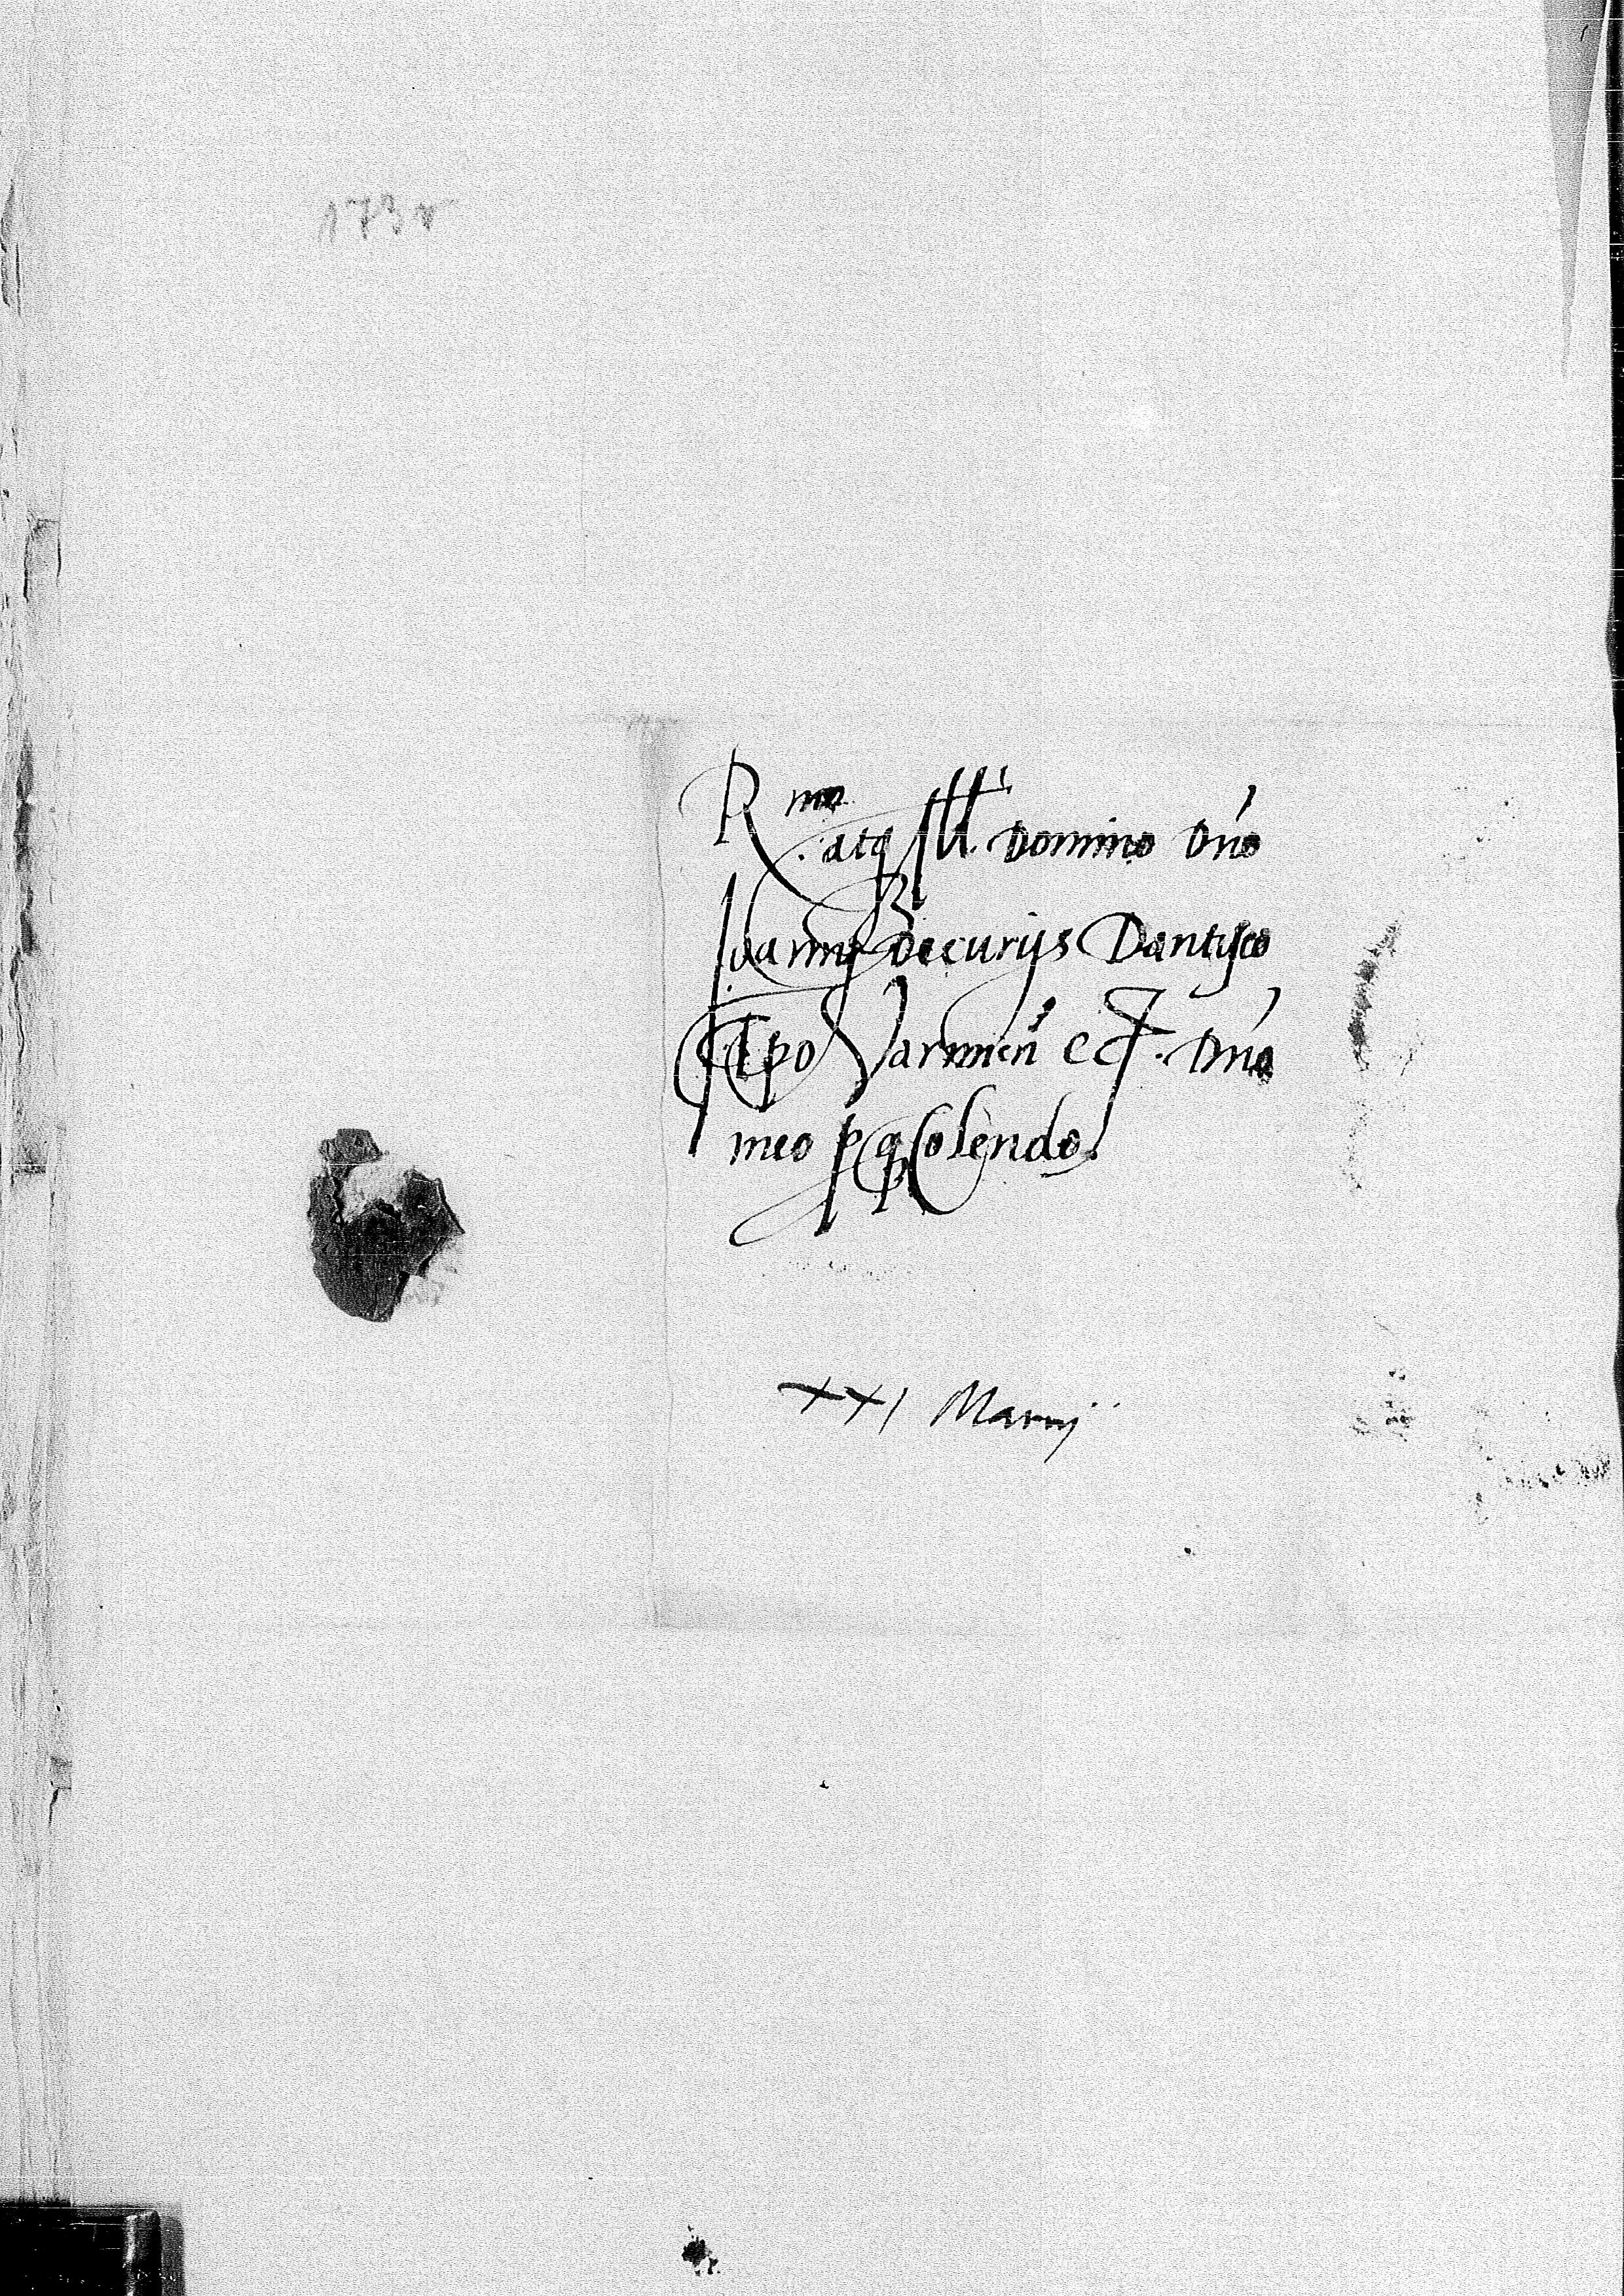 R mo
. atq Ill. Domino Dno
Ioanni Decurijs Dantisco
Epo Varmien et. Dno
meo p q Colendo.
XXI Marcij